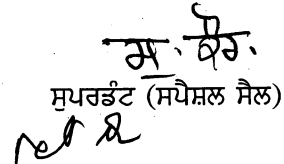 ਸ. ਕੌਰ.
ਸੁਪਰਡੰਟ (ਸਪੈਸ਼ਲ ਸੈੱਲ)